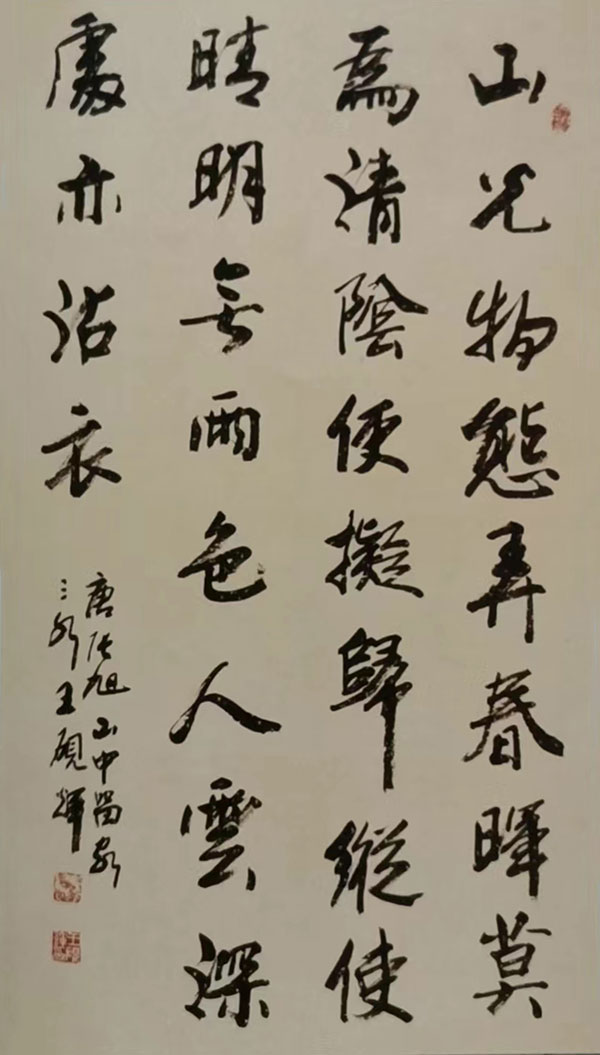 山光物態弄春暉莫
為清陰便擬歸縱使
晴明無雨色入雲深
處亦沾衣
唐張旭山中留客
王硯輝